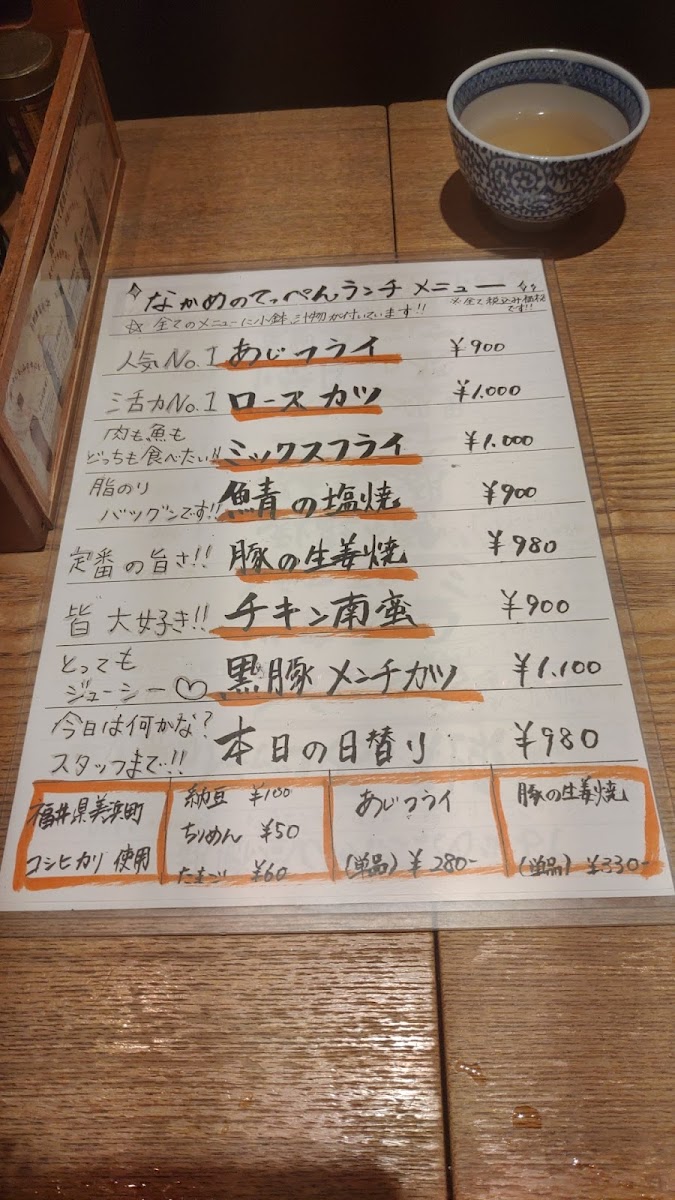 なかめのてっぺんランチ メニュー
※全て税込み価格です!!
☆ 全てのメニューに小鉢 汁物が付いています!!
人気No.1 あじフライ ¥900
活力No.1 ロースカツ ¥1.000
肉も魚も
どっちも食べたい!! ミックスフライ ¥1.000
脂のり
バツグンです!! 鯖の塩焼 ¥900
定番の旨さ!! 豚の生姜焼 ¥980
皆 大好き!! チキン南蛮 ¥900
とっても
ジューシー♡ 黒豚 メンチカツ ¥1.100
今日は何かな?
スタッフまで!! 本日の日替り ¥980
福井県美浜町
コシヒカリ 使用
納豆 ¥100
ちりめん ¥50
たまご ¥60
あじフライ
(単品) ¥280-
豚の生姜焼
(単品) ¥330-